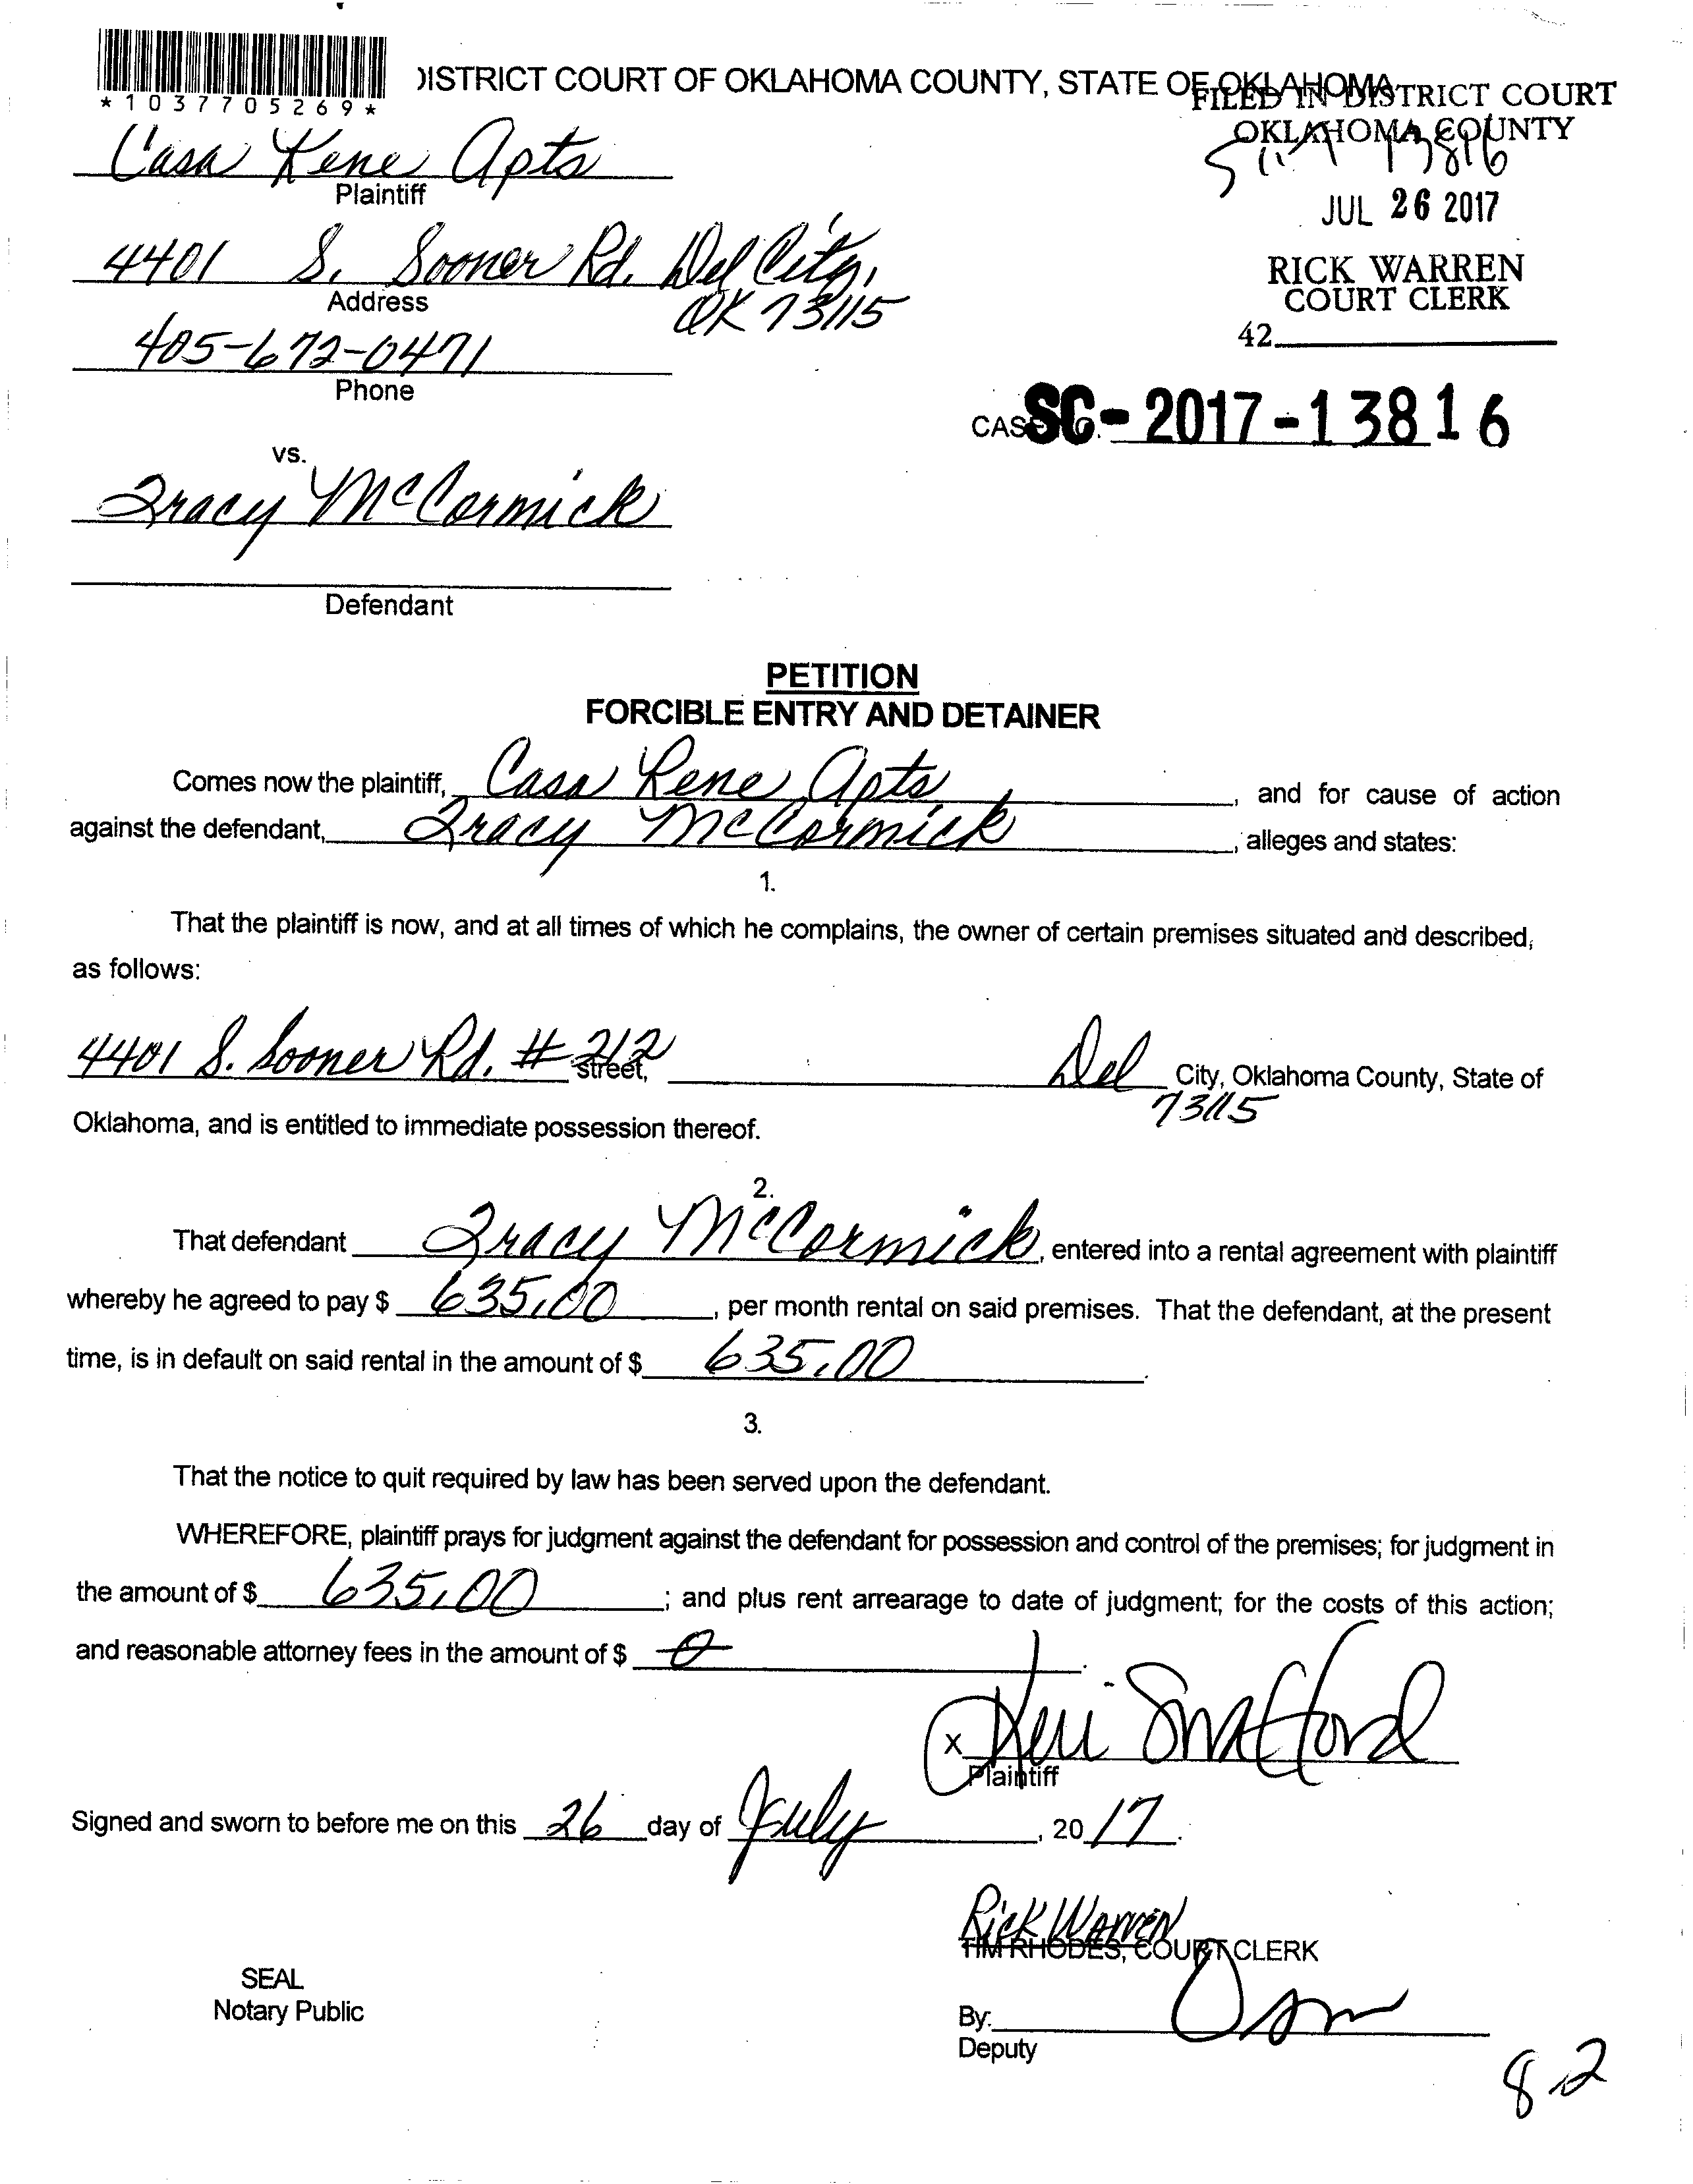 *1037705269*
DISTRICT COURT OF OKLAHOMA COUNTY, STATE OF OKLAHOMA
FILED IN DISTRICT COURT
OKLAHOMA COUNTY
13816
JUL 26 2017
RICK WARREN
COURT CLERK
42
Casa Rene Apts
Plaintiff
4401 S. Sooner Rd. Del City,
OK 73115
Address
405-672-0471
Phone
CASE NO. SC-2017-13816
vs.
Tracy McCormick
Defendant
PETITION
FORCIBLE ENTRY AND DETAINER
Comes now the plaintiff, Casa Rene Apts, and for cause of action
against the defendant, Tracy McCormick, alleges and states:
1.
That the plaintiff is now, and at all times of which he complains, the owner of certain premises situated and described,
as follows:
4401 S. Sooner Rd. # 212 street, Del City, Oklahoma County, State of
73115
Oklahoma, and is entitled to immediate possession thereof.
2.
That defendant Tracy McCormick, entered into a rental agreement with plaintiff
whereby he agreed to pay $ 635.00, per month rental on said premises. That the defendant, at the present
time, is in default on said rental in the amount of $ 635.00.
3.
That the notice to quit required by law has been served upon the defendant.
WHEREFORE, plaintiff prays for judgment against the defendant for possession and control of the premises; for judgment in
the amount of $ 635.00; and plus rent arrearage to date of judgment; for the costs of this action;
and reasonable attorney fees in the amount of $ 0.
x Keri
Plaintiff
Signed and sworn to before me on this 26 day of July, 20 17.
Rick Warren
TIM RHODES, COURT CLERK
SEAL
Notary Public
By:
Deputy
82